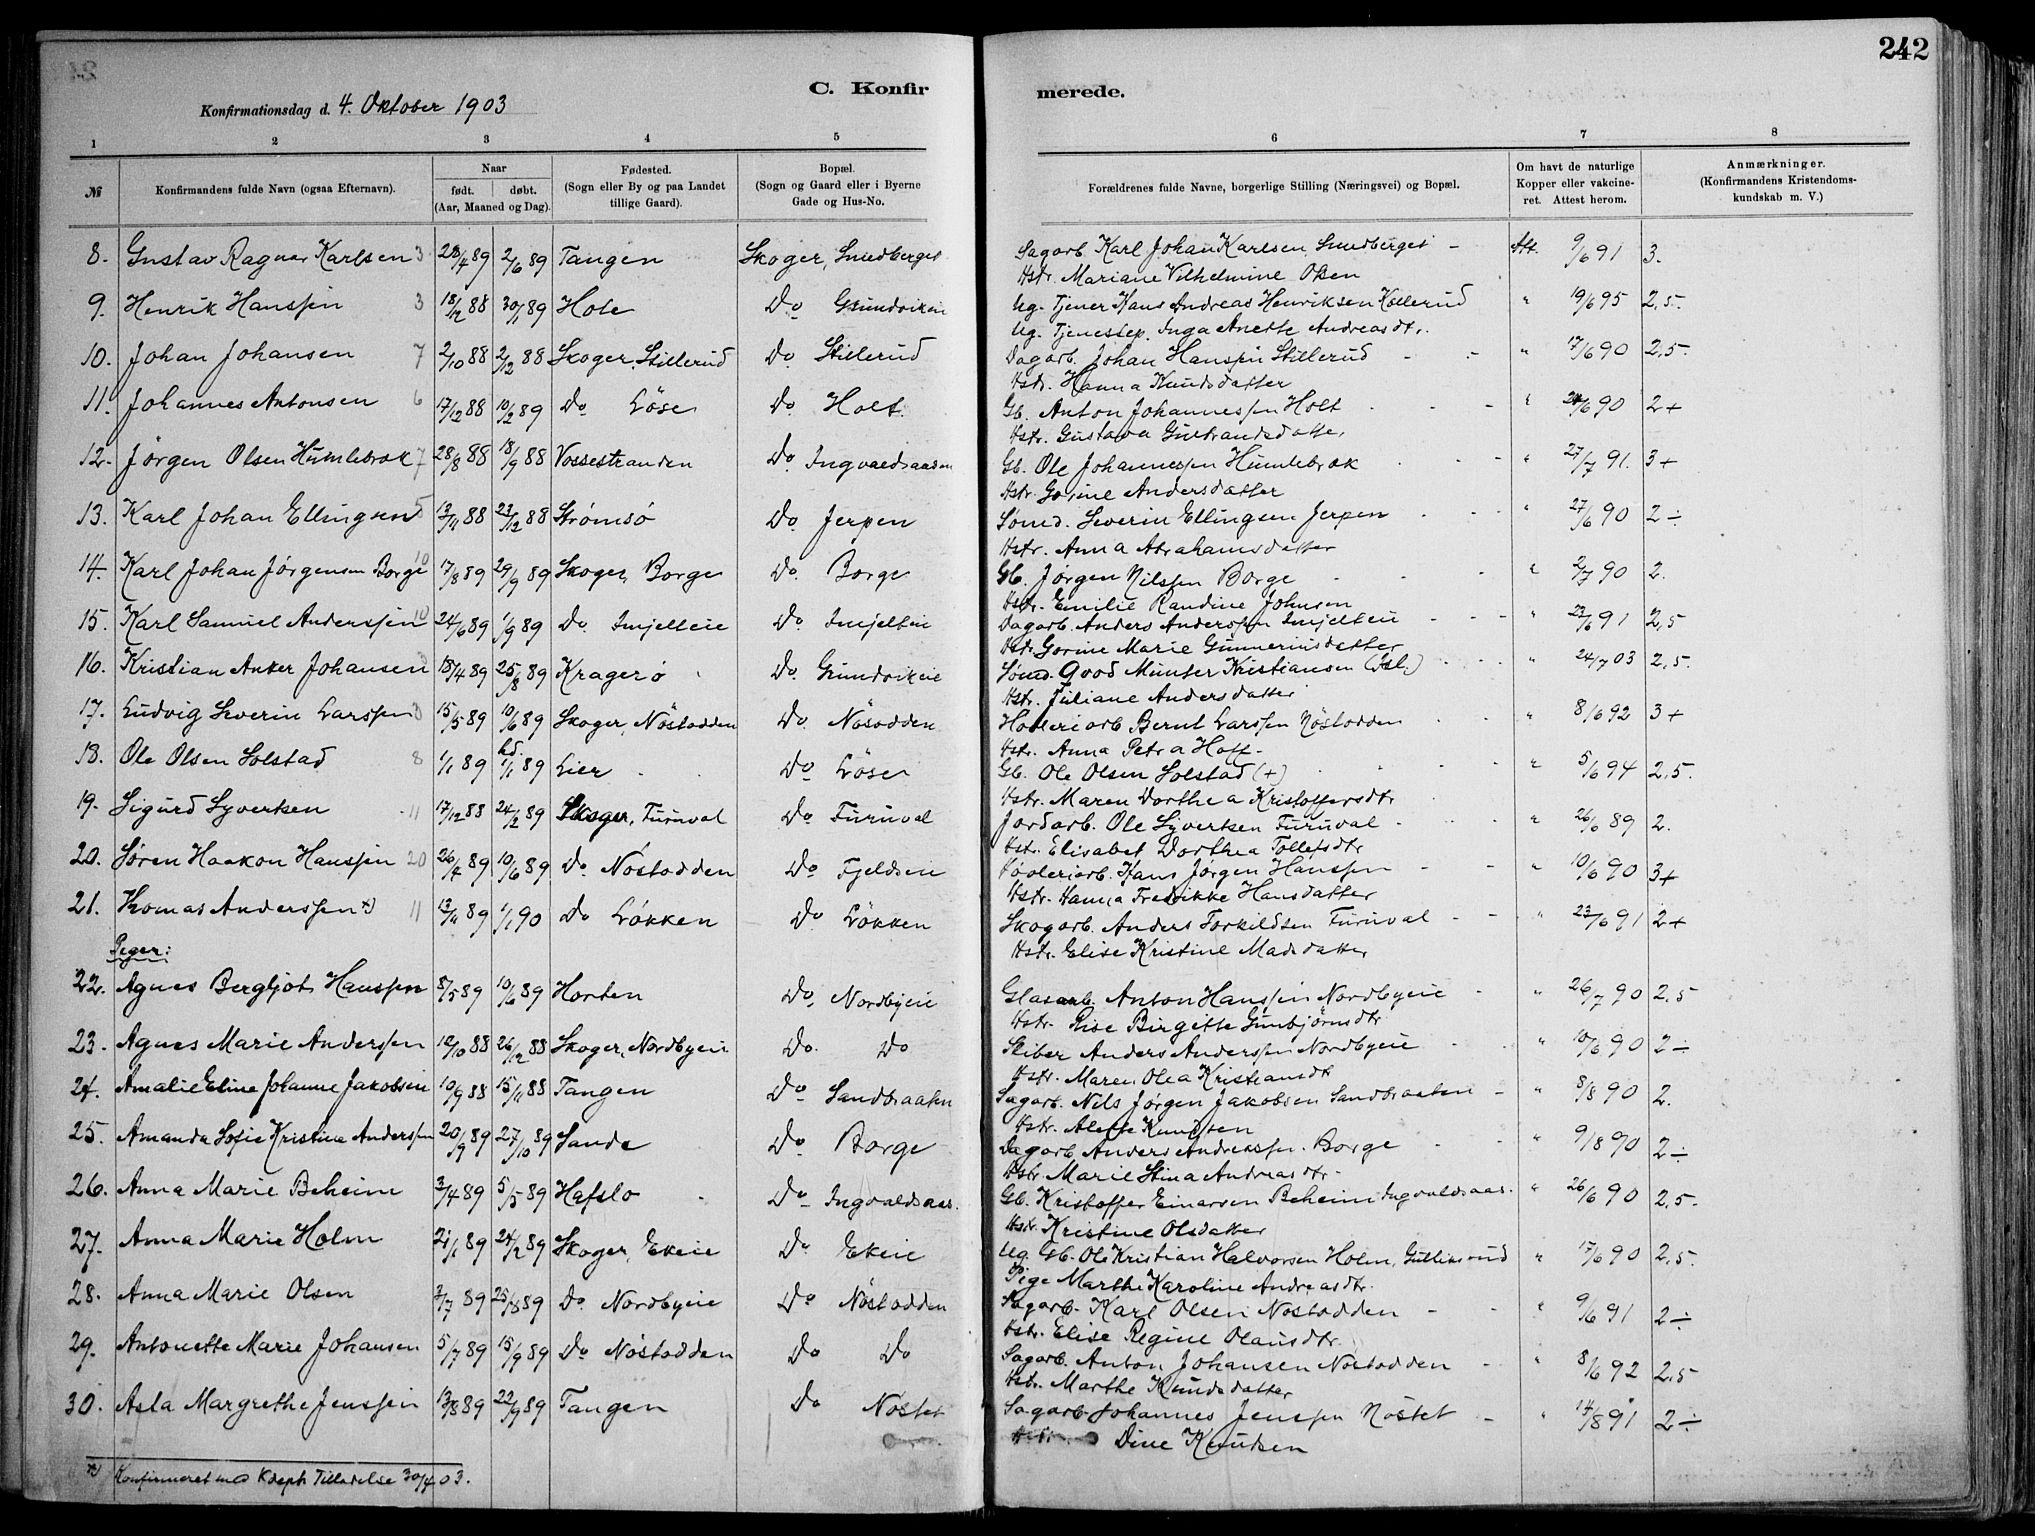 242
C. Konfir merede.
Konfirmationsdag d. 4. Oktober 1903
1 2 3 4 5 6 7 8
№ Konfirmandens fulde Navn (ogsaa Efternavn). Naar født. døbt. (Aar, Maaned og Dag). Fødested. (Sogn eller By og paa Landet tillige Gaard). Bopæl. (Sogn og Gaard eller i Byerne Gade og Hus-No. Forældrenes fulde Navne, borgerlige Stilling (Næringsvei) og Bopæl. Om havt de naturlige Kopper eller vakcineret. Attest herom. Anmærkninger. (Konfirmandens Kristendomskundskab m. V.)
8. Gustav Ragnar Karlsen 3 28/4 89 2/6 89 Tangen Skoger, Smedberget Sagarb. Karl Johan Karlsen Smedberget - Att. 9/6 91 3.
Hstr. Mariane Vilhelmine Olsen
9. Henrik Hanssen 3 18/12 88 30/1 89 Hole Do Grundvikeie Ug. Tjener Hans Andreas Henriksen Kollerud " 19/6 95 2,5.
Ug. Tjenestep. Inga Anette Andreasdtr.
10. Johan Johansen 7 2/10 88 2/12 88 Skoger, Stillerud Do Stillerud Dagarb. Johan Hansen Stillerud - - " 17/6 90 2,5.
Hstr. Hanna Knudsdatter
11. Johannes Antonsen 6 17/12 88 10/2 89 Do Løse Do Holt Gb. Anton Johannessen Holt " 24/6 90 2+
Hstr. Gustava Gulbrandsdatter
12. Jørgen Olsen Humlebrek 7 28/8 88 18/9 88 Vossestranden Do Ingvaldsaasen Gb. Ole Johannessen Humlebrek " 27/7 91. 3+
Hstr. Gorine Andersdatter
13. Karl Johan Ellingsen 5 13/11 88 23/12 88 Strømsø Do Jerpen Sømd. Severin Ellingsen Jerpen " 27/6 90 2÷
Hstr. Anna Abrahamsdatter
14. Karl Johan Jørgensen Borge 10 17/8 89 29/9 89 Skoger, Borge Do Borge Gb. Jørgen Nilssen Borge " 2/7 90 2.
Hstr. Emilie Randine Johnsen
15. Karl Samuel Anderssen 10 24/6 89 1/9 89 Do Imjelteie Do Imjelteie Dagarb. Anders Anderssen Imjelteie " 23/6 91 2,5
Hstr. Gorine Marie Gunneriusdatter
16. Kristian Anker Johansen 3 18/4 89 25/8 89 Kragerø Do Grundvikeie Sømd. Qvod Munter Kristiansen " 24/7 03 2,5.
Hstr. Juliane Andersdatter
17. Ludvig Severin Larssen 3 15/5 89 10/6 89 Skoger, Nøstodden Do. Nøsodden Høvleriarb. Bernt Larssen Nøstodden " 8/6 92 3+
Hstr. Anna Petra Hoff.
18. Ole Olsen Solstad 8 1/1 89 hd. 1/1 89 Lier Do Løse Gb. Ole Olsen Solstad (+) " 5/6 94 2,5.
Hstr. Maren Dorthea Kristoffersdtr
19. Sigurd Syvertsen 11 17/12 88 24/2 89 Skoger, Furuval Do Furuval Jordarb. Ole Syvertsen Furuval " 26/6 89 2.
Hstr. Elisabet Dorthea Tollefsdtr
20. Søren Haakon Hanssen 20 26/4 89 10/6 89 Do Nøstodden Do Fjeldseie Høvleriarb. Hans Jørgen Hanssen " 10/6 90 3+
Hstr. Hanna Fredrikke Hansdatter
21. Thomas Anderssen *) 11 13/11 89 1/1 90 Do Løkken Do Løkken Skogarb. Anders Torkildsen Furuval " 23/6 91 2+
Hstr. Elise Kristine Madsdatter
Piger:
22. Agnes Bergljot Hanssen 8/5 89 10/6 89 Horten Do Nordbyeie Glasarb. Anton Hanssen Nordbyeie " 26/7 90 2,5
Hstr. Lise Birgitte Gunbjørnsdtr
23. Agnes Marie Anderssen 12/10 88 26/12 88 Skoger, Nordbyeie Do. Do Sliber Anders Anderssen Nordbyeie " 10/6 90 2÷
Hstr. Maren Olea Kristiansdt
24. Amalie Eline Johanne Jakobsen 10/9 88 15/11 88 Tangen Do Sandbraaten Sagarb. Nils Jørgen Jakobsen Sandbraaten " 8/8 90 2.
Hstr. Alette Knudsen
25. Amanda Sofie Kristine Anderssen 20/9 89 27/10 89 Sande Do Borge Dagarb. Anders Andreassen Borge " 9/8 90 2÷
Hstr. Marie Stina Andreasdtr.
26. Anna Marie Beheim 3/4 89 5/5 89 Hafslo Do Ingvaldsaas. Gb. Kristoffer Einarsen Beheim Ingvaldsaas. " 26/6 90 2,5.
Hstr. Kristine Olsdatter
27. Anna Marie Holm 21/1 89 24/2 89 Skoger, Ekeie Do Ekeie Ug. Gb. Ole Kristian Halvorsen Holm, Gulliksrud " 17/6 90 2,5.
Pige Marthe Karoline Andreasdtr.
28. Anna Marie Olsen 3/7 89 25/8 89 Do Nordbyeie Do Nøstodden Sagarb. Karl Olsen Nøstodden - - " 9/6 91 2÷
Hstr. Elise Regine Olausdtr.
29. Antonette Marie Johansen 5/7 89 15/9 89 Do Nøstodden Do Do Sagarb. Anton Johansen Nøstodden - " 8/6 92 2,5
Hstr. Marthe Knudsdatter
30. Asla Margrethe Jenssen 13/8 89 22/9 89 Tangen Do Nøstet Sagarb. Johannes Jenssen Nøstet - " 14/8 91 2÷
Dine Knudsen
*) Konfirmeret med Kdepts Tilladelse 30/4 03.